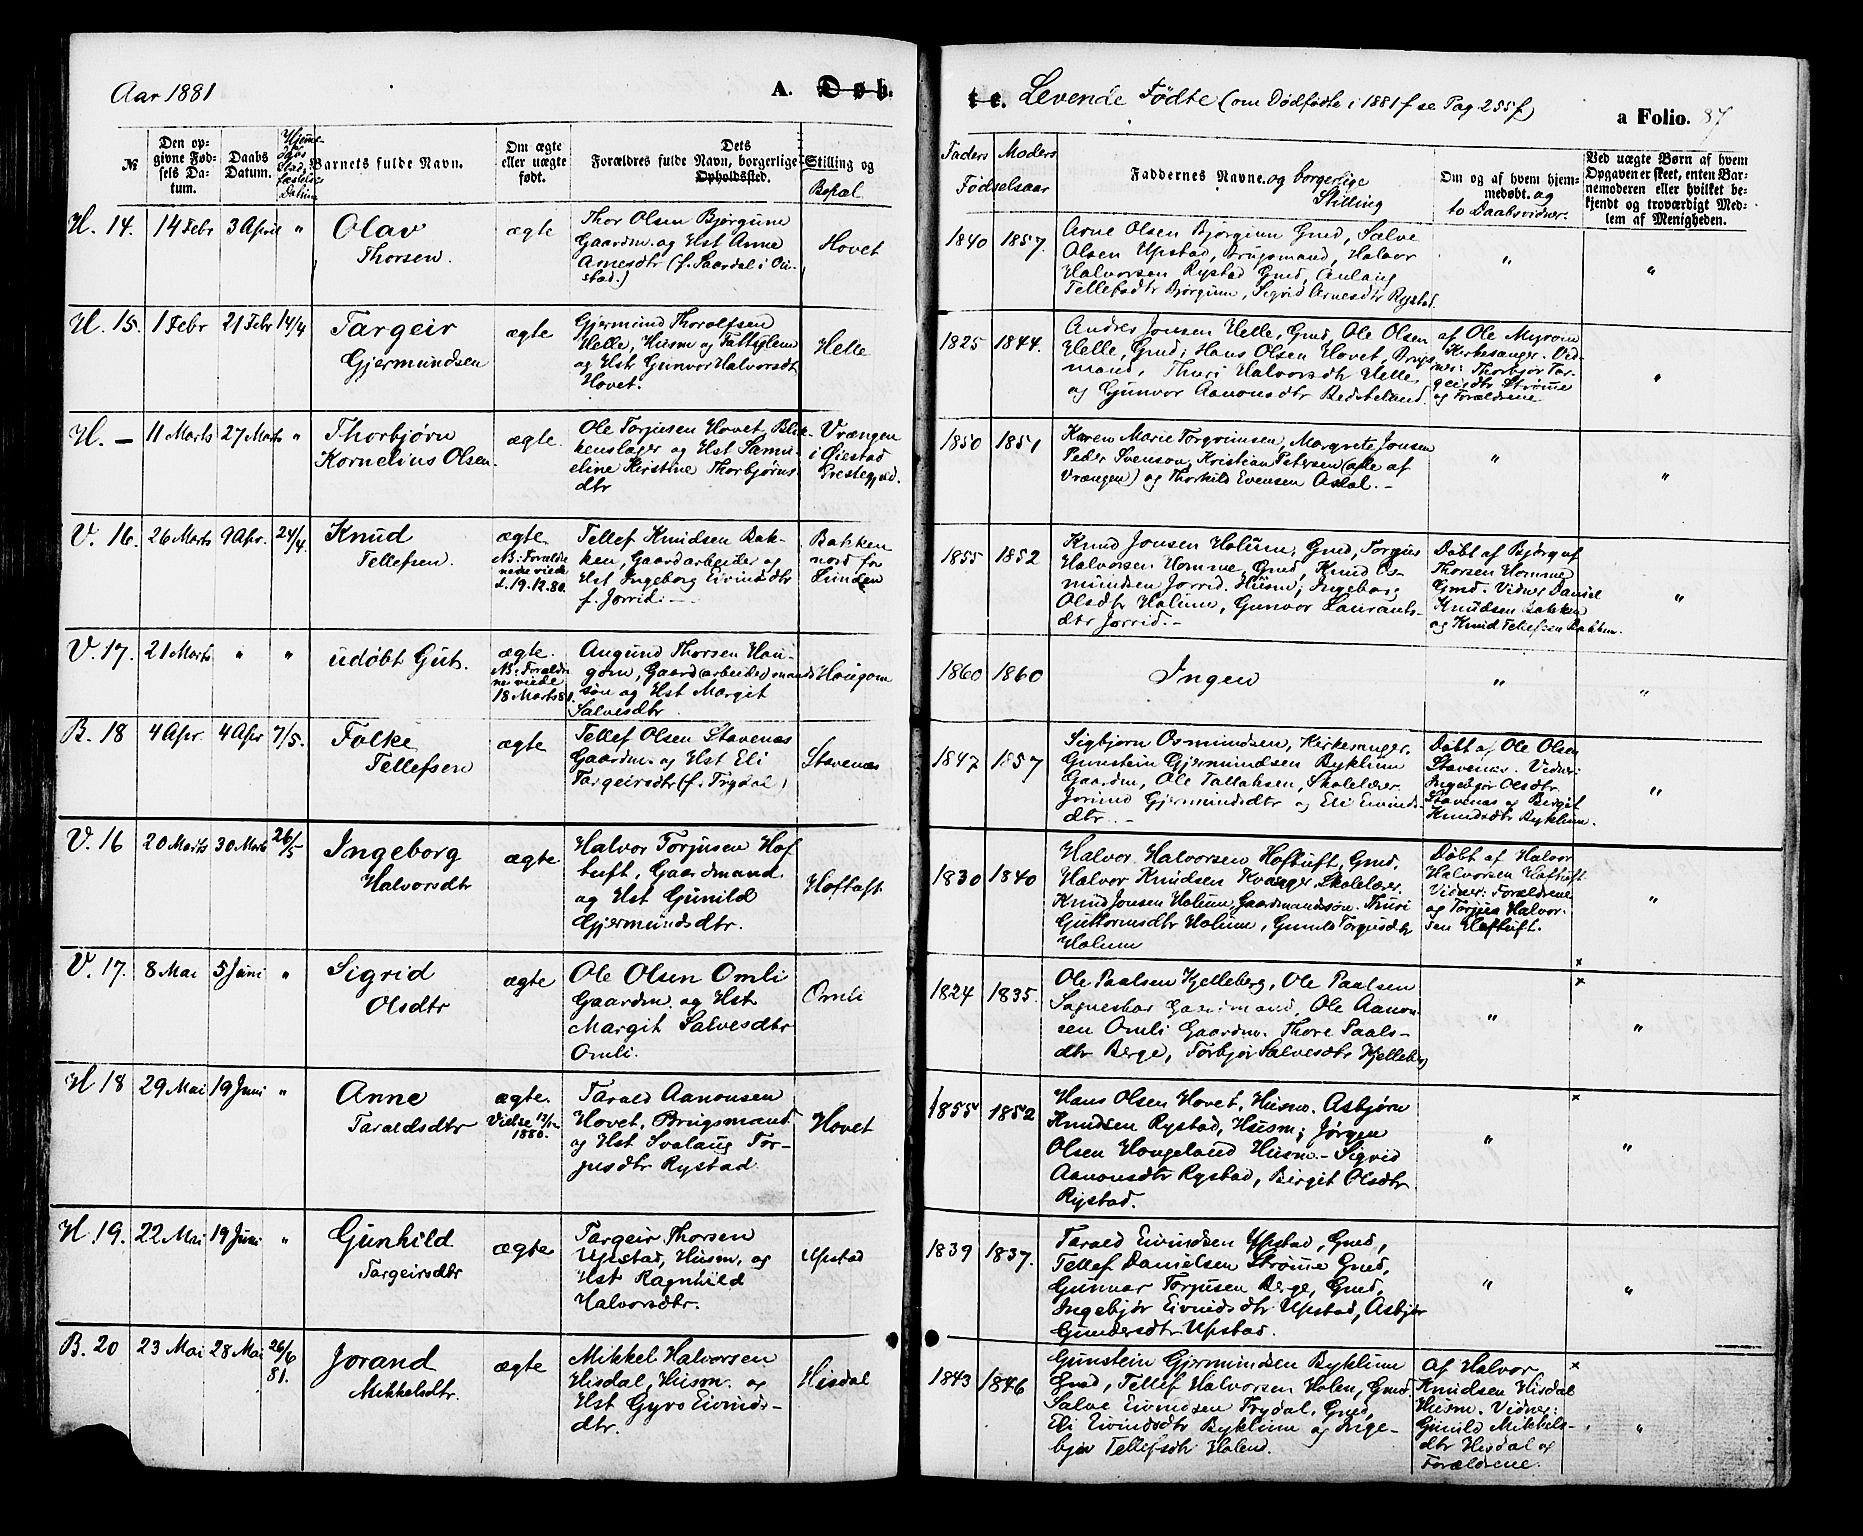 Aar 1881
A. Døb.
te. Levende Fødte (om Dødfødte i 1881 f se Pag 255 f)
a Folio. 87
№
Den op-
givne Fød-
sels Da-
tum.
Daabs
Datum.
Hjemme-
Stad-
fæstelses
Datum
Barnets fulde Navn.
Om ægte
eller uægte
født.
Dets
Forældres fulde Navn, borgerlige
Opholdssted.
Stilling og
Bopæl
Faders
Moders
Fødselsaar
Faddernes Navne og borgerlige
Stilling
Om og af hvem hjem-
medøbt. og
to Daabsvidner.
Ved uægte Børn af hvem
Opgaven er skeet, enten Bar-
nemoderen eller hvilket be-
kjendt og troværdigt Med-
lem af Menigheden.
H. 14. 14 Febr 3 April "
Olav
Thorsen.
ægte
Thor Olsen Bjørgum
Gaardm. og Hst Anne
Arnesdtr (f. Saardal i Øi-
stad.)
Hovet
1840 1857.
Arne Olsen Bjørgum Gmd, Salve
Olsen Upstad, Brugsmand, Halvor
Halvorsen Rystad Gmd, Anlaug
Tellefsdtr Bjørgum, Sigrid Arnesdtr Rystad.
" "
H. 15. 1 Febr 21 Febr 14/4
Targeir
Gjermundsen
ægte
Gjermund Thorolfsen
Helle, Husm og Fattiglem
og Hst Gunvor Halvorsdt
Hovet.
Helle
1825 1844.
Andres Jonsen Helle, Gmd, Ole Olsen
Helle, Gmd; Hans Olsen Hovet, Brugs-
mand, Thuri Halvorsdtr Helle
og Gunvor Aanonsdtr Bedsteland.
af Ole Myrvin
Kirkesanger. Vid-
ner: Thorbjør Tar-
geirsdtr Strøme
og Forældrene
"
H. — 11 Marts 27 Marts "
Thorbjørn
Kornelius Olsen.
ægte.
Ole Torjusen Hovet, Blik-
kenslager og Hst Samu-
eline Kirstine Thorbjørns
dtr
Vrængen
i Øiestad
Prestegjeld.
1850 1851
Karen Marie Torgrimsen, Margrete Jonsen
Peder Svenson, Kristian Petersen (alle af
Vrængen) og Thorkild Evensen Asdal.-
" "
V. 16. 26 Marts 9 Apr. 24/4
Knud
Tellefsen.
ægte
NB: Forældre
nene viede
d. 19.12.80.
Tellef Knudsen Bak-
ken, Gaardarbeider og
Hst Ingeborg Eivindsdtr
f. Jorrid.-
Bakken
nord for
Lunden
1855 1852
Knud Jonsen Holum, Gmd, Torgius
Halvorsen Homme, Gmd, Knud Os-
mundsen Jorrid, Husm; Ingeborg
Olsdtr Holum, Gunvor Laurants-
dtr Jorrid.-
Døbt af Bjørguf
Thorsen Homme
Gmd. Vidner Daniel
Knudsen Bakken
og Knud Tellefsen Bakken.
"
V. 17. 21 Marts " "
udøbt Gut.
ægte.
NB: Foræld
ne viede
18 Marts 81.
Augund Thorsen Hou-
gom, Gaard(arbeider)mands
søn og Hst Margit
Salvesdtr
Hougom
1860 1860
Ingen
" "
B. 18 4 Apr. 4 Apr 7/5.
Folke
Tellefsen
ægte
Tellef Olsen Stavenes
Gaardm. og Hst Eli
Targeirsdtr (f. Trydal)
Stavenæs
1847 1857
Sigbjørn Osmundsen, Kirkesanger,
Gunstein Gjermundsen Byklum
Gaardm, Ole Tallaksen, Skolelærer
Jorund Gjermundsdtr og Eli Eivinds
dtr.-
Døbt af Ole Olsen
Stavenes. Vidner:
Ingebjør Olsdtr
Stavenæs og Bergit
Knudsdtr Byklum.
"
V. 16 20 Marts 30 Marts 26/5
Ingeborg
Halvorsdtr
ægte
Halvor Torjusen Hof
tuft, Gaardmand
og Hst Gunild
Gjermundsdtr.
Hoftuft
1830 1840
Halvor Halvorsen Hoftuft, Gmd,
Halvor Knudsen Kvarger, Skolelærer
Knud Jonsen Holum, Gaardmandssøn. Thuri
Guttormsdtr Holum, Gunild Torjusdtr
Holum
Døbt af Halvor
Halvorsen Hoftuft.
Vidner: Forældrene
og Torjus Halvor-
sen Hoftuft.
"
V. 17. 8 Mai 5 Juni "
Sigrid
Olsdtr
ægte
Ole Olsen Omli
Gaardm og Hst
Margit Salvesdtr
Omli.
Omli
1824 1835.
Ole Paalsen Kjelleberg, Ole Paalsen
Sagneskar Gaardmand, Ole Aanon-
sen Omli Gaardm. Thore Paals-
dtr Berge, Torbjør Salvesdtr Kjelleberg
" "
H 18 29 Mai 19 Juni "
Anne
Taraldsdtr
ægte.
Vielse 12/12
1880.
Tarald Aanonsen
Hovet, Brugsmand
og Hst Svalaug Tor-
jusdtr Rystad
Hovet
1855 1852
Hans Olsen Hovet, Husm. Asbjørn
Knudsen Rystad, Husm; Jørgen
Olsen Haugeland Husm - Sigrid
Aanonsdtr Rystad, Birgit Olsdtr
Rystad.
" "
H 19. 22 Mai 19 Juni "
Gunhild
Targeirsdtr
ægte
Targeir Thorsen
Upstad, Husm, og
Hst Ragnhild
Halvorsdtr.
Upstad
1839 1837.
Tarald Eivindsen Upstad, Gmd,
Tellef Danielsen Strøme Gmd,
Gunnar Torjusen Berge, Gmd,
Ingebjør Eivindsdtr Upstad, Asbjør
Gundersdtr Upstad.
" "
B. 20 23 Mai 28 Mai 26/6
81.
Jorand
Mikkelsdtr.
ægte
Mikkel Halvorsen
Hisdal, Husm. og
Hst Gyro Eivinds-
dtr.
Hisdal
1843 1846
Gunstein Gjermundsen Byklum
Gmd, Tellef Halvorsen Holen, Gmd.
Salve Eivindsen Trydal, Gmd,
Eli Eivindsdtr Byklum og Inge-
bjør Tellefsdtr Holen.
Af Halvor
Knudsen Hisdal
Husm. Vidner:
Gunild Mikkels-
dtr Hisdal og
Forældrene.
"